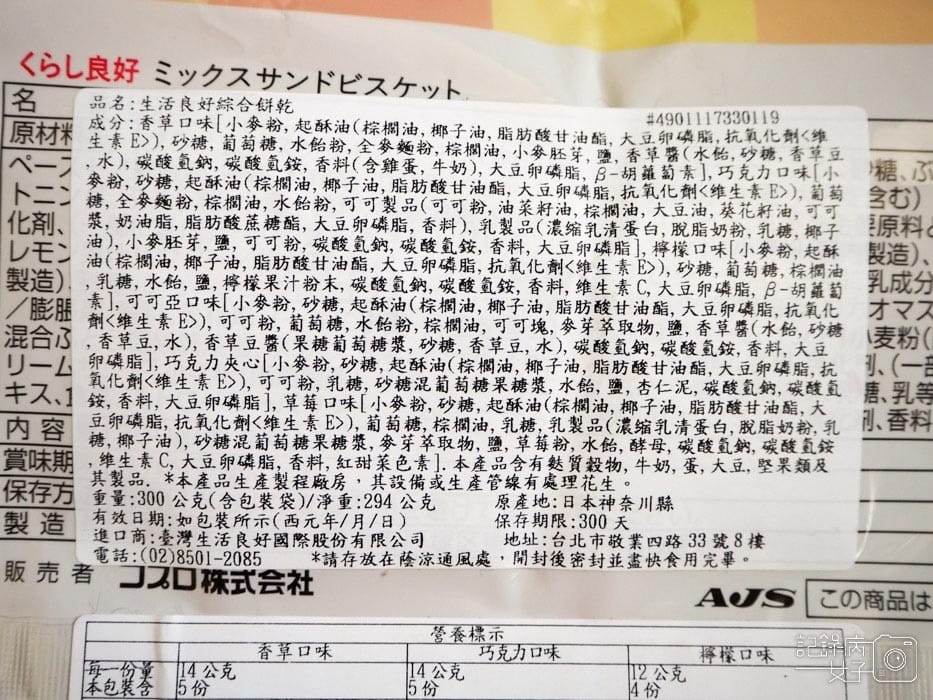 くらし良好 ミックスサンドビスケット
名
品名:生活良好綜合餅乾 #4901117330119
原材料
成分:香草口味[小麥粉, 起酥油(棕櫚油, 椰子油, 脂肪酸甘油酯, 大豆卵磷脂, 抗氧化劑<維
生素 E>), 砂糖, 葡萄糖, 水飴粉, 全麥麵粉, 棕櫚油, 小麥胚芽, 鹽, 香草醬(水飴, 砂糖, 香草豆
, 水), 碳酸氫鈉, 碳酸氫銨, 香料(含雞蛋, 牛奶), 大豆卵磷脂, β-胡蘿蔔素], 巧克力口味[小
麥粉, 砂糖, 起酥油(棕櫚油, 椰子油, 脂肪酸甘油酯, 大豆卵磷脂, 抗氧化劑<維生素 E>), 葡萄
糖, 全麥麵粉, 棕櫚油, 水飴粉, 可可製品(可可粉, 油菜籽油, 棕櫚油, 大豆油, 葵花籽油, 可可
漿, 奶油脂, 脂肪酸蔗糖酯, 大豆卵磷脂, 香料), 乳製品(濃縮乳清蛋白, 脫脂奶粉, 乳糖, 椰子
油), 小麥胚芽, 鹽, 可可粉, 碳酸氫鈉, 碳酸氫銨, 香料, 大豆卵磷脂], 檸檬口味[小麥粉, 起酥
油(棕櫚油, 椰子油, 脂肪酸甘油酯, 大豆卵磷脂, 抗氧化劑<維生素 E>), 砂糖, 葡萄糖, 棕櫚油
, 乳糖, 水飴, 鹽, 檸檬果汁粉末, 碳酸氫鈉, 碳酸氫銨, 香料, 維生素 C, 大豆卵磷脂, β-胡蘿蔔
素], 可可亞口味[小麥粉, 砂糖, 起酥油(棕櫚油, 椰子油, 脂肪酸甘油酯, 大豆卵磷脂, 抗氧化
劑<維生素 E>), 可可粉, 葡萄糖, 水飴粉, 棕櫚油, 可可塊, 麥芽萃取物, 鹽, 香草醬(水飴, 砂糖
, 香草豆, 水), 香草豆醬(果糖葡萄糖漿, 砂糖, 香草豆, 水), 碳酸氫鈉, 碳酸氫銨, 香料, 大豆
卵磷脂], 巧克力夾心[小麥粉, 砂糖, 起酥油(棕櫚油, 椰子油, 脂肪酸甘油酯, 大豆卵磷脂, 抗
氧化劑<維生素 E>), 可可粉, 乳糖, 砂糖混葡萄糖果糖漿, 水飴, 鹽, 杏仁泥, 碳酸氫鈉, 碳酸氫
銨, 香料, 大豆卵磷脂], 草莓口味[小麥粉, 砂糖, 起酥油(棕櫚油, 椰子油, 脂肪酸甘油酯, 大
豆卵磷脂, 抗氧化劑<維生素 E>), 葡萄糖, 棕櫚油, 乳糖, 乳製品(濃縮乳清蛋白, 脫脂奶粉, 乳
糖, 椰子油), 砂糖混葡萄糖果糖漿, 麥芽萃取物, 鹽, 草莓粉, 水飴, 酵母, 碳酸氫鈉, 碳酸氫銨
, 維生素 C, 大豆卵磷脂, 香料, 紅甜菜色素]. 本產品含有麩質穀物, 牛奶, 蛋, 大豆, 堅果類及
其製品. *本產品生產製程廠房, 其設備或生產管線有處理花生。
重量:300 公克(含包裝袋)/淨重:294 公克 原產地:日本神奈川縣
有效日期:如包裝所示(西元年/月/日) 保存期限:300 天
進口商:臺灣生活良好國際股份有限公司 地址:台北市敬業四路 33 號 8 樓
電話:(02)8501-2085 *請存放在蔭涼通風處, 開封後密封並盡快食用完畢。
ペース
トニン
化剤、
レモン
製造)
/膨脹
混合ぶ
リーム
キス、
内容
賞味期
保存方
製造
糖、ぶ
含む)
要原料と
製造)、
乳成分
オマス
小麦粉(
剤、(一部
糖、乳等
剤、香料
販売者 コプロ株式会社
AJS この商品は
營養標示
香草口味 巧克力口味 檸檬口味
每一份量 14 公克 14 公克 12 公克
本包裝含 5 份 5 份 4 份
記錄肉女子